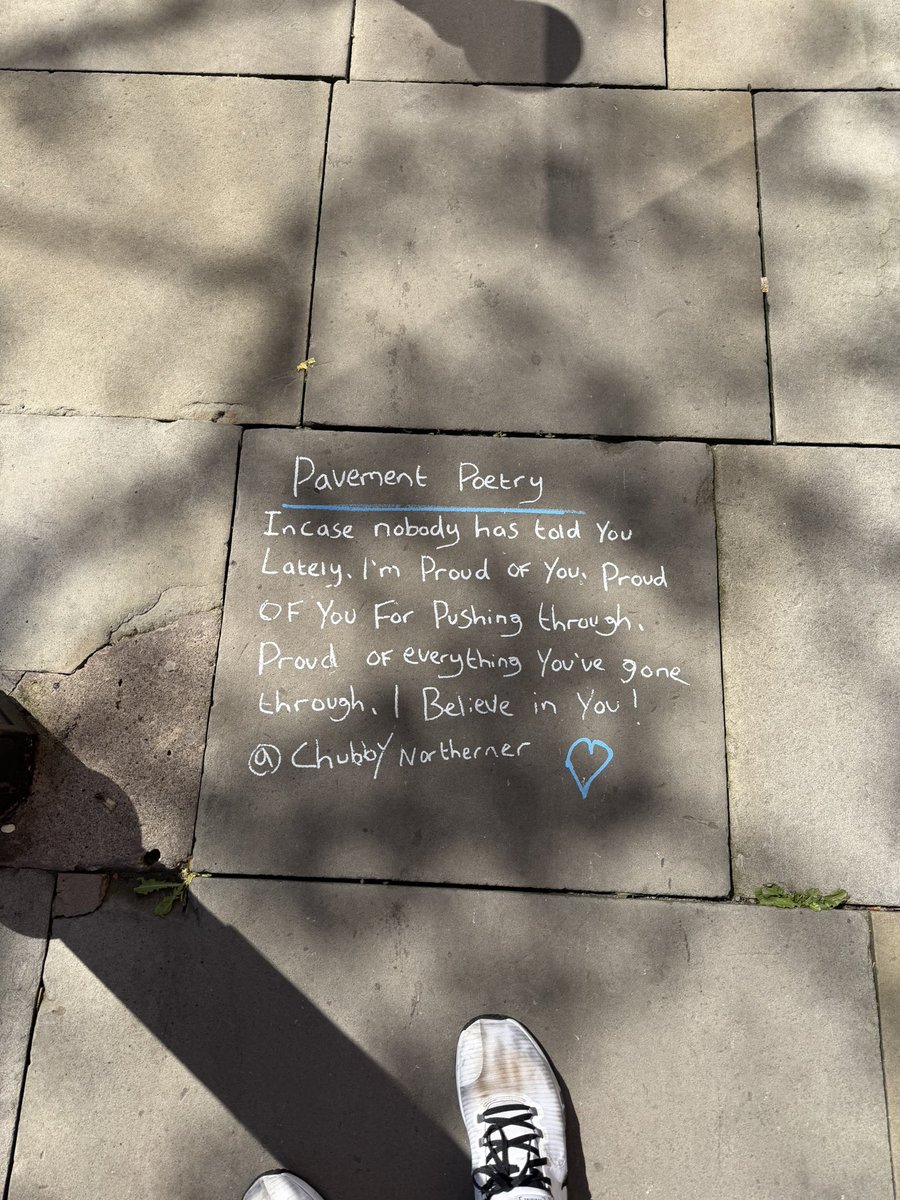 Pavement Poetry
Incase nobody has told You
Lately. I'm Proud of You. Proud
OF You For Pushing through.
Proud OF everything You've gone
through. I Believe in You!
@ Chubby Northerner